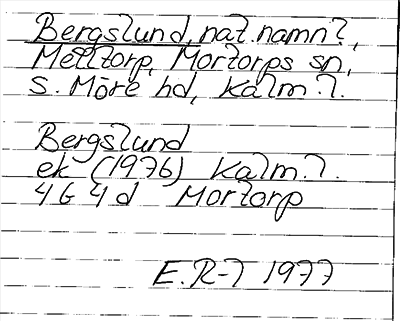 Bergslund, nat. namn i,
Melltorp, Mortorps sn,
S. Möre hd, Kalm. l.
Bergslund
ek (1976) Kalm. l.
4 G 4 d Mortorp
E.R-l 1977